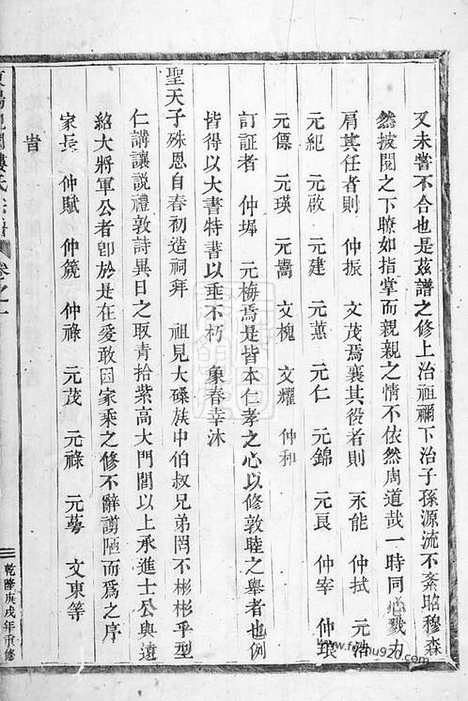 又未嘗不合也是茲譜之修上治祖禰下治子孫源流不紊昭穆森
然披閱之下瞭如指掌而親親之情不依然周道哉一時同心戮力
肩其任者則 仲振 文茂焉襄其役者則 永能 仲拭 元浩
元紀 元啟 元建 元蕙 元仁 元錦 元良 仲宰 仲環
元儒 元瑛 元嵩 文槐 文耀 仲和
訂証者 仲墀 元梅焉是皆本仁孝之心以修敦睦之舉者也例
皆得以大書特書以垂不朽 象春幸沐
聖天子殊恩自春初造祠拜 祖見大磉族中伯叔兄弟罔不彬彬乎型
仁講讓說禮敦詩異日之取青拾紫高大門閭以上承進士公與遠
紹大將軍公者卽於是在爰敢因家乘之修不辭謭陋而爲之序
旹
家長 仲賦 仲箎 仲祿 元茂 元祿 文東等
氏宗譜 卷之一
乾隆庚戌年重修
www.fushu920.com